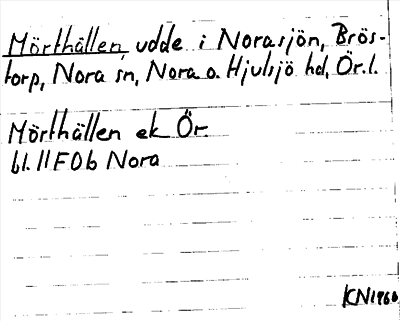 Mörthällen, udde i Norasjön, Brös-
torp, Nora sn, Nora o. Hjulsjö hd, Ör. l.
Mörthällen ek Ör.
bl. 11F0b Nora
KN1960